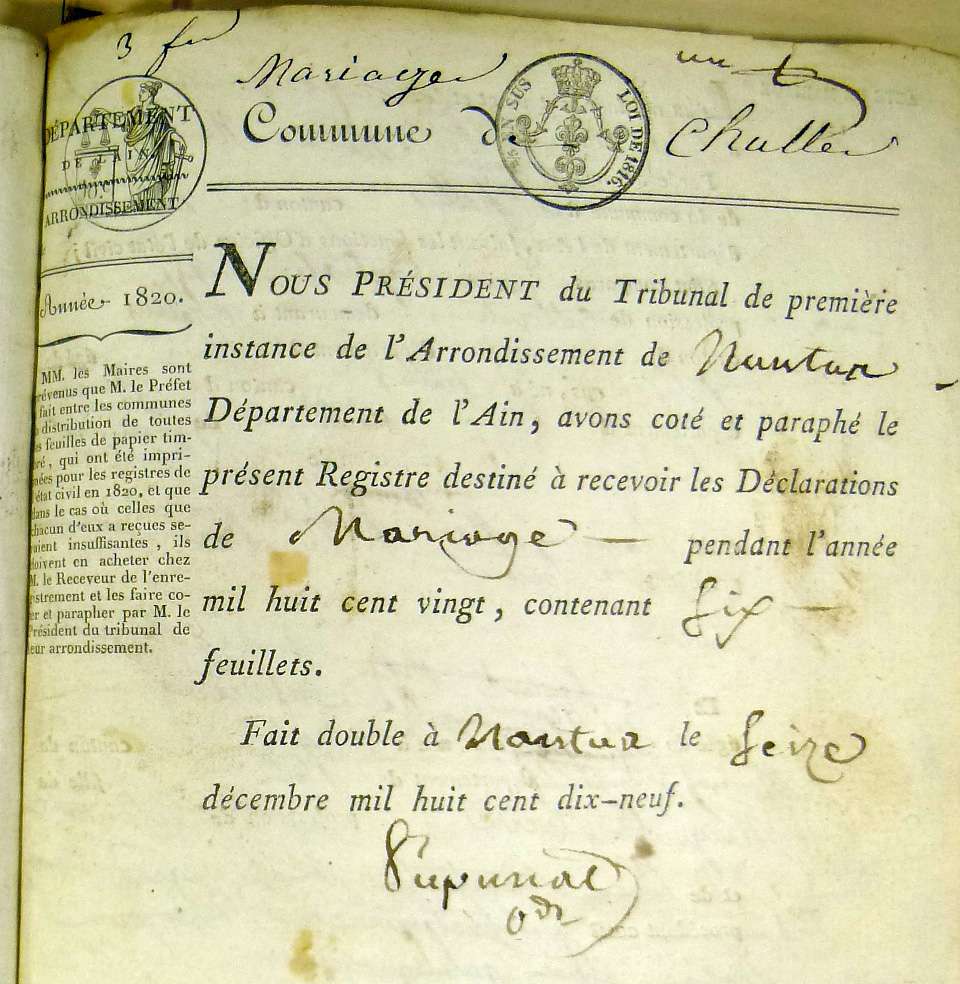 3
Mariage un
DÉPARTEMENT
DE L'AIN
ARRONDISSEMENT
Commune de Challe
EN SUS LOI DE 1816.
Année 1820.
MM. les Maires sont
prévenus que M. le Préfet
fait entre les communes
distribution de toutes
les feuilles de papier tim-
bré, qui ont été impri-
mées pour les registres de
l'état civil en 1820, et que
dans le cas où celles que
chacun d'eux a reçues se-
raient insuffisantes, ils
doivent en acheter chez
M. le Receveur de l'enre-
gistrement et les faire co-
ter et parapher par M. le
Président du tribunal de
leur arrondissement.
NOUS PRÉSIDENT du Tribunal de première
instance de l'Arrondissement de Nantua
Département de l'Ain, avons coté et paraphé le
présent Registre destiné à recevoir les Déclarations
de Mariage — pendant l'année
mil huit cent vingt, contenant Six —
feuillets.
Fait double à Nantua le Seize
décembre mil huit cent dix-neuf.